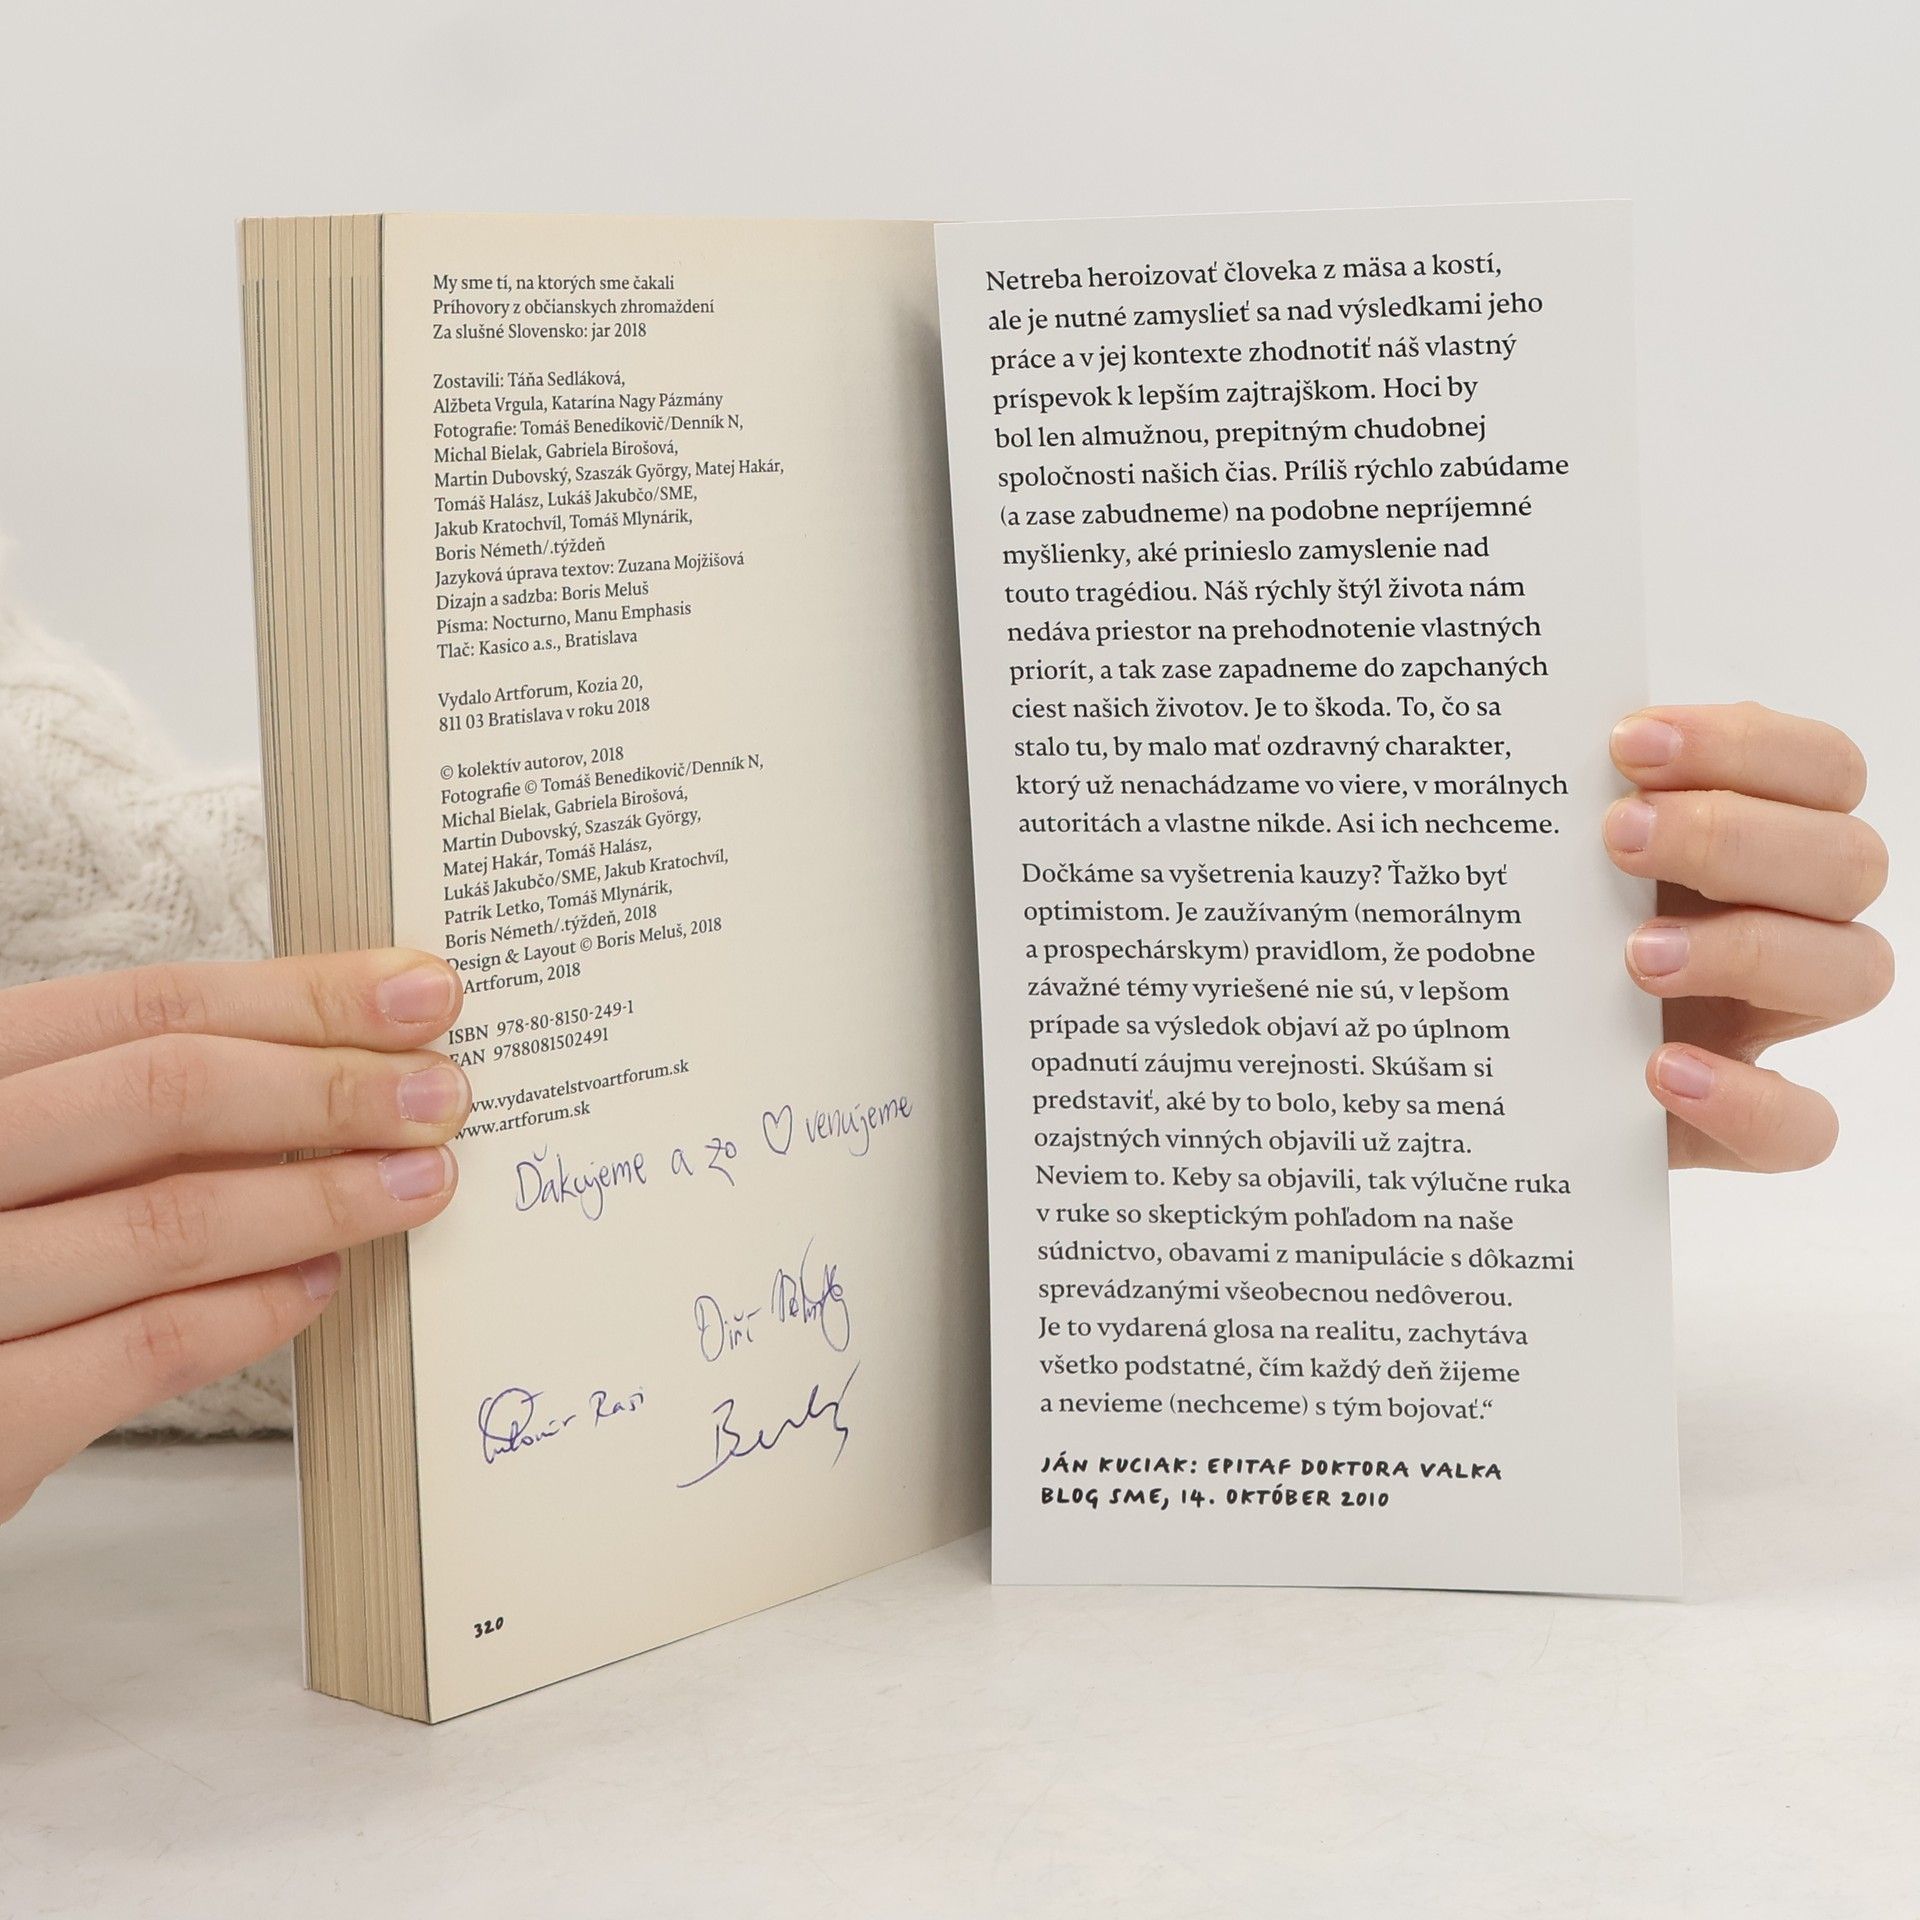 My sme tí, na ktorých sme čakali
Príhovory z občianskych zhromaždení
Za slušné Slovensko: jar 2018
Zostavili: Táňa Sedláková,
Alžbeta Vrgula, Katarína Nagy Pázmány
Fotografie: Tomáš Benedikovič/Denník N,
Michal Bielak, Gabriela Birošová,
Martin Dubovský, Szaszák György, Matej Hakár,
Tomáš Halász, Lukáš Jakubčo/SME,
Jakub Kratochvíl, Tomáš Mlynárik,
Boris Németh/.týždeň
Jazyková úprava textov: Zuzana Mojžišová
Dizajn a sadzba: Boris Meluš
Písma: Nocturno, Manu Emphasis
Tlač: Kasico a.s., Bratislava
Vydalo Artforum, Kozia 20,
811 03 Bratislava v roku 2018
© kolektív autorov, 2018
Fotografie © Tomáš Benedikovič/Denník N,
Michal Bielak, Gabriela Birošová,
Martin Dubovský, Szaszák György,
Matej Hakár, Tomáš Halász,
Lukáš Jakubčo/SME, Jakub Kratochvíl,
Patrik Letko, Tomáš Mlynárik,
Boris Németh/.týždeň, 2018
Design & Layout © Boris Meluš, 2018
Artforum, 2018
ISBN 978-80-8150-249-1
EAN 9788081502491
www.vydavatelstvoartforum.sk
www.artforum.sk
Ďakujeme a zo ♡ venujeme
Jiří
320
Netreba heroizovať človeka z mäsa a kostí,
ale je nutné zamyslieť sa nad výsledkami jeho
práce a v jej kontexte zhodnotiť náš vlastný
príspevok k lepším zajtrajškom. Hoci by
bol len almužnou, prepitným chudobnej
spoločnosti našich čias. Príliš rýchlo zabúdame
(a zase zabudneme) na podobne nepríjemné
myšlienky, aké prinieslo zamyslenie nad
touto tragédiou. Náš rýchly štýl života nám
nedáva priestor na prehodnotenie vlastných
priorít, a tak zase zapadneme do zapchaných
ciest našich životov. Je to škoda. To, čo sa
stalo tu, by malo mať ozdravný charakter,
ktorý už nenachádzame vo viere, v morálnych
autoritách a vlastne nikde. Asi ich nechceme.
Dočkáme sa vyšetrenia kauzy? Ťažko byť
optimistom. Je zaužívaným (nemorálnym
a prospechárskym) pravidlom, že podobne
závažné témy vyriešené nie sú, v lepšom
prípade sa výsledok objaví až po úplnom
opadnutí záujmu verejnosti. Skúšam si
predstaviť, aké by to bolo, keby sa mená
ozajstných vinných objavili už zajtra.
Neviem to. Keby sa objavili, tak výlučne ruka
v ruke so skeptickým pohľadom na naše
súdnictvo, obavami z manipulácie s dôkazmi
sprevádzanými všeobecnou nedôverou.
Je to vydarená glosa na realitu, zachytáva
všetko podstatné, čím každý deň žijeme
a nevieme (nechceme) s tým bojovať.“
JÁN KUCIAK: EPITAF DOKTORA VALKA
BLOG SME, 14. OKTÓBER 2010